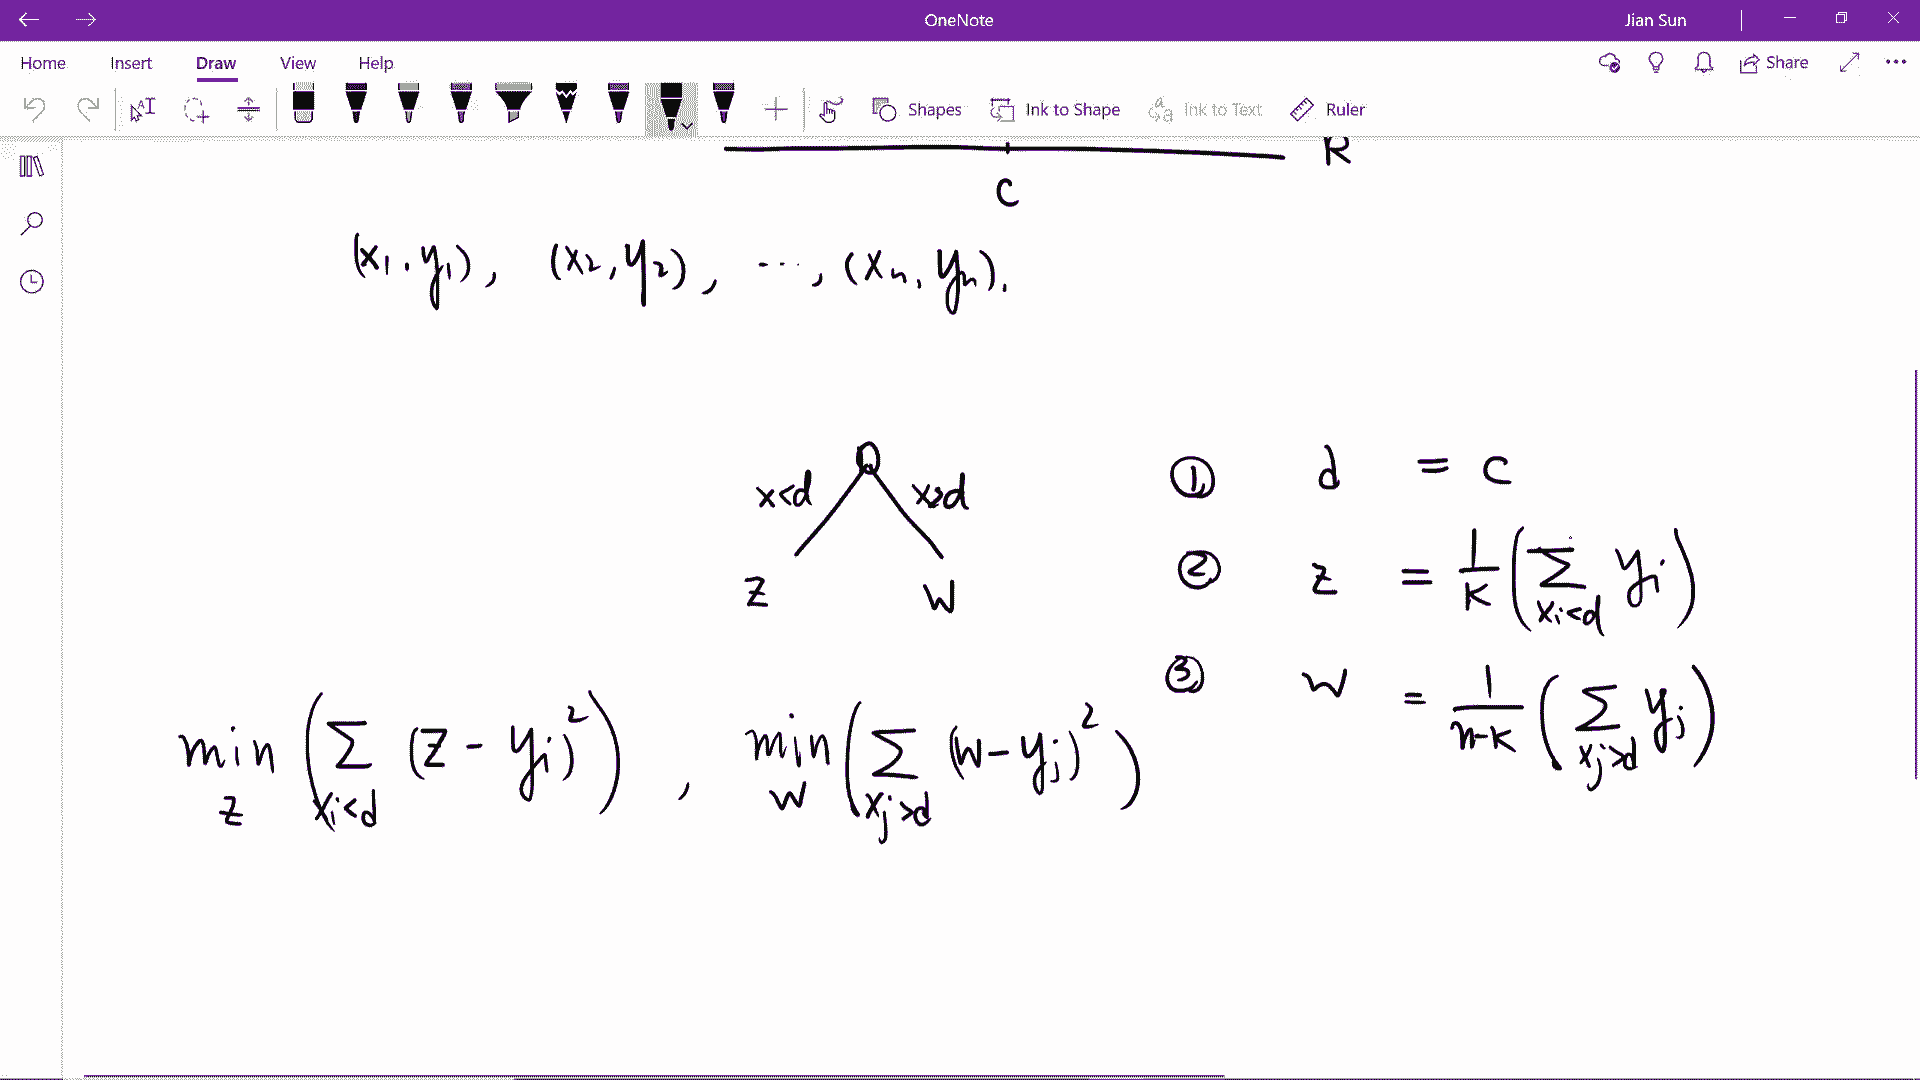 OneNote
Jian Sun
Home Insert Draw View Help
Share
Shapes Ink to Shape Ink to Text Ruler
R
C
(x₁, y₁), (x₂, y₂), ..., (xₙ, yₙ).
x<d x>d
z w
① d = c
② z = 1/k (∑_{xᵢ<d} yᵢ)
③ w = 1/(n-k) (∑_{xⱼ>d} yⱼ)
min_z (∑_{xᵢ<d} (z - yᵢ)²), min_w (∑_{xⱼ>d} (w - yⱼ)²)